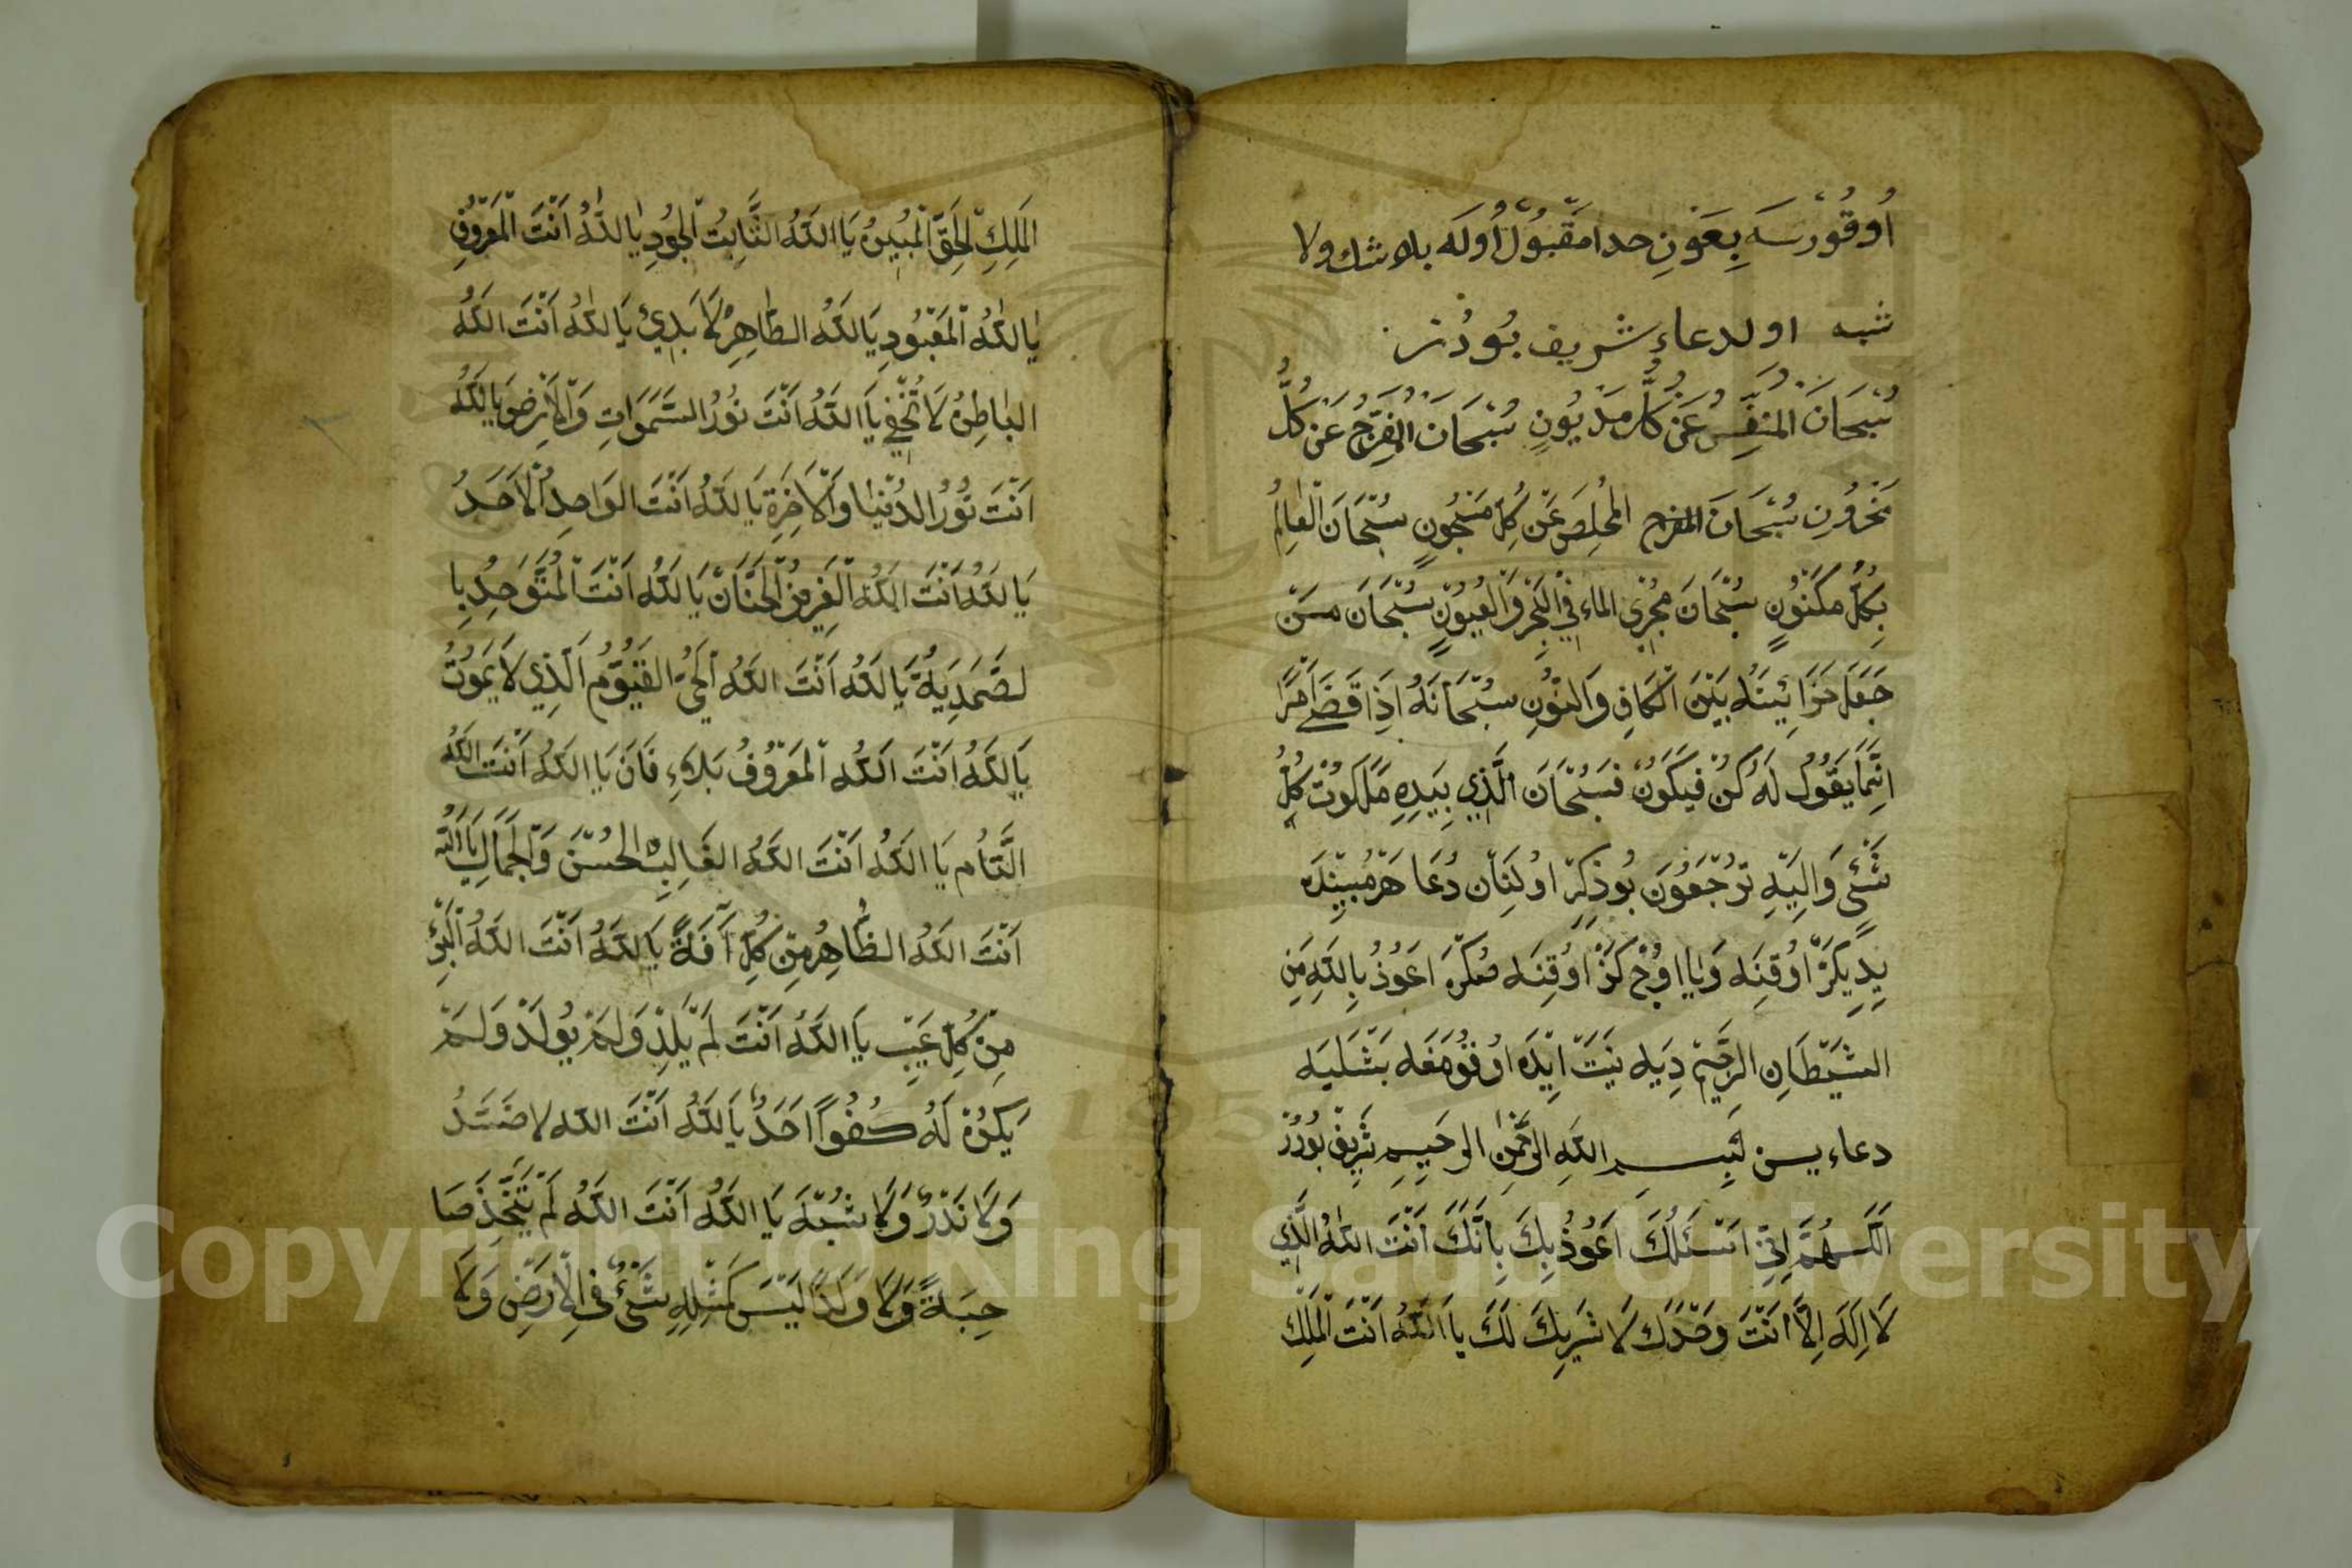 اُوقُورسَه بِعَونِ حدا مَقْبُولْ اُولَه بلا شك ولا
شبه اولدعاءِ شريف بُودُر
سُبْحَانَ الْمُنَفِّسِ عَنْ كُلِّ مَدْيُونٍ سُبْحَانَ الْمُفَرِّجُ عَنْ كُلِّ
مَخْزُونِ سُبْحَانَ المفرج الْمُخْلِصِ عَنْ كُلِّ مَسْجُونٍ سُبْحَانَ الْعَالِمُ
بِكُلِّ مَكْنُونٍ سُبْحَانَ مُجْرِي الماءِ فِي الْبَحْرِ وَالْعُيُونِ سُبْحَانَ مَنْ
جَعَلَ خَزَائِينَهُ بَيْنَ الْكَافِ وَالنُّونِ سُبْحَانَهُ اَذَا قَضَى اَمْرًا
اِنَّمَا يَقُولُ لَهُ كُنْ فَيَكُونُ فَسُبْحَانَ الَّذِي بِيَدِهِ مَلَكُوتُ كُلِّ
شَيْءٍ وَاِلَيْهِ تُرْجَعُونَ بُوذِكِرْ اوُلِنَانْ دُعَا هَرْ مُبِيْنِدَه
يِدِيكَرْ اوُقِنَه وَيَا اوُچْ كَرْ اوُقِنَه مُكَرَّ اَعُوذُ بِاللّهِ مِنَ
الشَّيْطَانِ الرَّجِيمِ دِيَه نِيَتْ اَيْدَه اوُقُومَغَه بَشْلَيَه
دعاء يسن لَبِسمِ اللّهِ الرَّحْمٰنِ الرحِيمِ شَرِيفْ بُودُرْ
اَللّهُمَّ اِنِّي اَسْئَلُكَ اَعُوذُ بِكَ بِاَنَّكَ اَنْتَ اللّهُ الَّذِي
لَا اِلَهَ اِلَّا اَنْتَ وَحْدَكَ لَا شَرِيكَ لَكَ يَا اللّهُ اَنْتَ الْمَلِكُ
الْمَلِكِ الْحَقِّ الْمُبِينُ يَا اللّهُ الثَّابِتُ الْجُودِ يَا اللّهُ اَنْتَ الْمَعْرُوفِ
يَا اللّهُ الْمَعْبُودِ يَا اللّهُ الظَّاهِرُ لَا بَدِئُ يَا اللّهُ اَنْتَ اللّهُ
الْبَاطِنُ لَا تُخْفِي يَا اللّهُ اَنْتَ نُورُ السَّمَوَاتِ وَالْاَرْضِ يَا اللّهُ
اَنْتَ نُورُ الدُّنْيَا وَالْاَخِرَةِ يَا اللّهُ اَنْتَ الوَاحِدِ الْاَحَدُ
يَا اللّهُ اَنْتَ اللّهُ الْعَزِيزُ الْحَنَّانْ يَا اللّهُ اَنْتَ الْمُتَوَحِدُ بِا
لصَّمَدِيَةْ يَا اللّهُ اَنْتَ اللّهُ الْحَيُّ الْقَيُّومُ الَّذِي لَا يَمُوتُ
يَا اللّهُ اَنْتَ اللّهُ الْمَعْرُوفُ بَلَاءِ فَانَ يَا اللّهُ اَنْتَ اللّهُ
التَّامُ يَا اللّهُ اَنْتَ اللّهُ الغَالِبْ الْحُسْنَ وَالْجَمَالِ يَا اللّهُ
اَنْتَ اللّهُ الظَّاهِرُ مِنْ كُلِّ آفَةً يَا اللّهُ اَنْتَ اللّهُ الْبَرِئُ
مِنْ كُلِّ عَيْبٍ يَا اللّهُ اَنْتَ لَمْ يَلِدْ وَلَمْ يُولَدْ وَلَمْ
يَكُنْ لَهُ كُفُواً اَحَدٌ يَا اللّهُ اَنْتَ اللّه لا ضَدُ
وَلَا نَدُّ وَلَا شُبْهَ يَا اللّهُ اَنْتَ اللّهُ لَمْ يَتَّخِذْ صَا
حِبَةً وَلَا وَلَدًا لَيْسَ كَمِثْلِهِ شَيْءُ فِي الْاَرْضِ وَلَا
Copyright © King Saud University
195